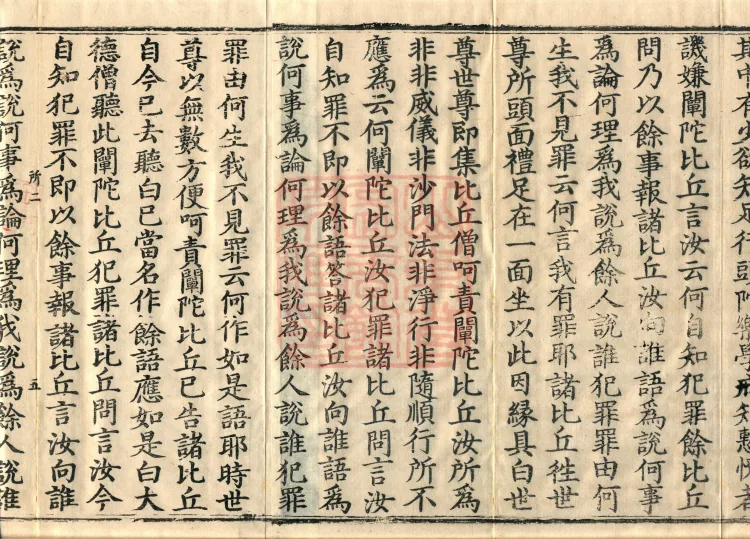 其中有少欲知足行頭陀樂學戒知慙愧者
譏嫌闡陀比丘言汝云何自知犯罪餘比丘
問乃以餘事報諸比丘汝向誰語爲說何事
爲論何理爲我說爲餘人說誰犯罪罪由何
生我不見罪云何言我有罪耶諸比丘徃世
尊所頭面禮足在一面坐以此因緣具白世
尊世尊即集比丘僧呵責闡陀比丘汝所爲
非非威儀非沙門法非淨行非隨順行所不
應爲云何闡陀比丘汝犯罪諸比丘問言汝
自知罪不即以餘語答諸比丘汝向誰語爲
說何事爲論何理爲我說爲餘人說誰犯罪
罪由何生我不見罪云何作如是語耶時世
尊以無數方便呵責闡陀比丘已告諸比丘
自今已去聽白已當名作餘語應如是白大
德僧聽此闡陀比丘犯罪諸比丘問言汝今
自知犯罪不即以餘事報諸比丘言汝向誰
所二 五
說爲說何事爲論何理爲我說爲餘人說誰